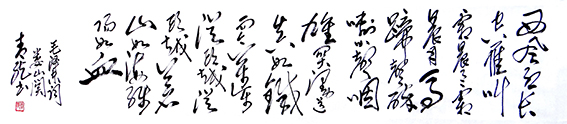 西风烈长
空雁叫
霜晨月霜
晨月马
蹄声碎
喇叭声咽
雄关漫道
真如铁
而今迈步
从头越从
头越苍
山如海残
阳如血
毛泽东词
娄山关
书